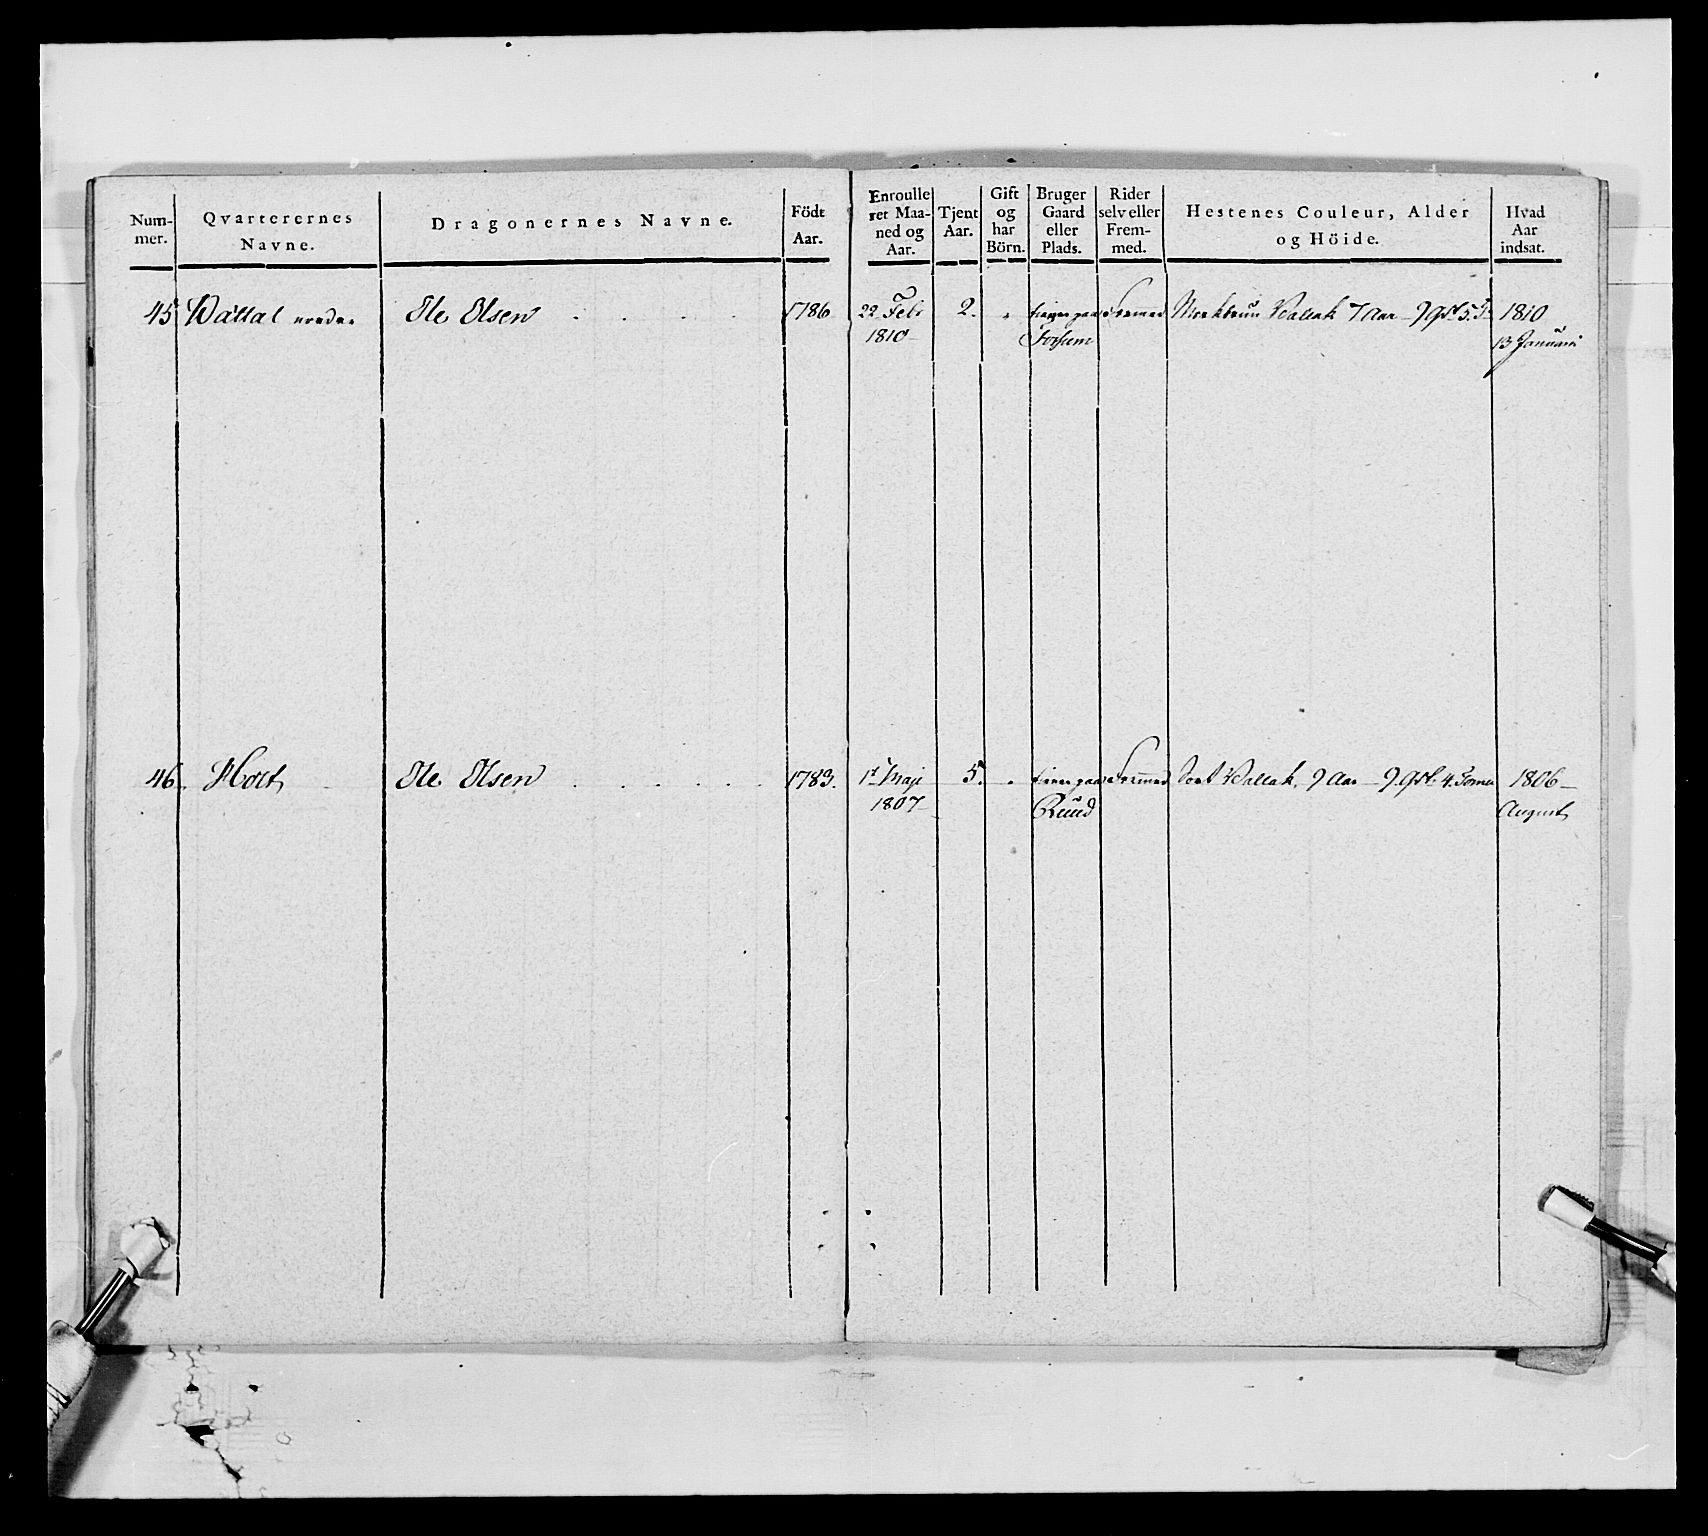 Num-
mer.
Qvarterernes
Navne.
Dragonernes Navne.
Födt
Aar.
Enroulle
ret Maa-
ned og
Aar.
Tjent
Aar.
Gift
og
har
Börn.
Bruger
Gaard
eller
Plads.
Rider
selv eller
Frem-
med.
Hestenes Couleur, Alder
og Höide.
Hvad
Aar
indsat.
45 Wattal nordre Ole Olsen 1786 22 Febr 2. tiener paa Fremed Morkbrun Vallak 7 Aar 1810
1810 Forsum 13 Januari
46. Holt Ole Olsen 1783. 1t Maji 5. tiener paa Fremed Sort Vallak, 9 Aar 9. Qvt 4. Tomer 1806
1807 Ruud August